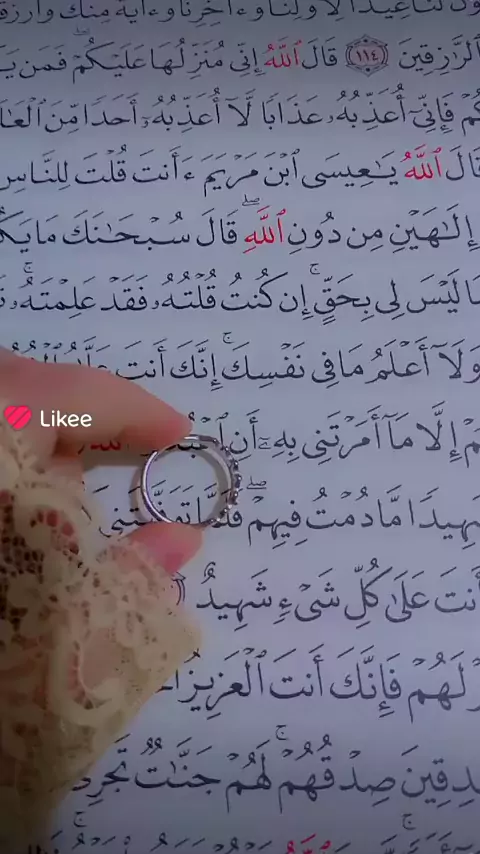 لَنَا عِيدًا لِّأَوَّلِنَا وَءَاخِرِنَا وَءَايَةً مِّنكَ وَٱرْزُقْ
ٱلرَّٰزِقِينَ ١١٤ قَالَ ٱللَّهُ إِنِّي مُنَزِّلُهَا عَلَيْكُمْ ۖ فَمَن يَ
كُمْ فَإِنِّيٓ أُعَذِّبُهُۥ عَذَابًا لَّآ أُعَذِّبُهُۥٓ أَحَدًا مِّنَ ٱلْعَا
قَالَ ٱللَّهُ يَٰعِيسَى ٱبْنَ مَرْيَمَ ءَأَنتَ قُلْتَ لِلنَّاسِ
إِلَٰهَيْنِ مِن دُونِ ٱللَّهِ ۖ قَالَ سُبْحَٰنَكَ مَا يَكُ
مَا لَيْسَ لِي بِحَقٍّ ۚ إِن كُنتُ قُلْتُهُۥ فَقَدْ عَلِمْتَهُۥ ۚ تَ
وَلَآ أَعْلَمُ مَا فِي نَفْسِكَ ۚ إِنَّكَ أَنتَ
مْ إِلَّا مَآ أَمَرْتَنِي بِهِۦٓ أَنِ
شَهِيدًا مَّا دُمْتُ فِيهِمْ ۖ فَلَمَّا تَوَفَّيْتَنِي
أَنتَ عَلَىٰ كُلِّ شَيْءٍ شَهِيدٌ
لَهُمْ فَإِنَّكَ أَنتَ ٱلْعَزِيزُ
ٱلصَّٰدِقِينَ صِدْقُهُمْ ۚ لَهُمْ جَنَّٰتٌ تَجْرِي
Likee